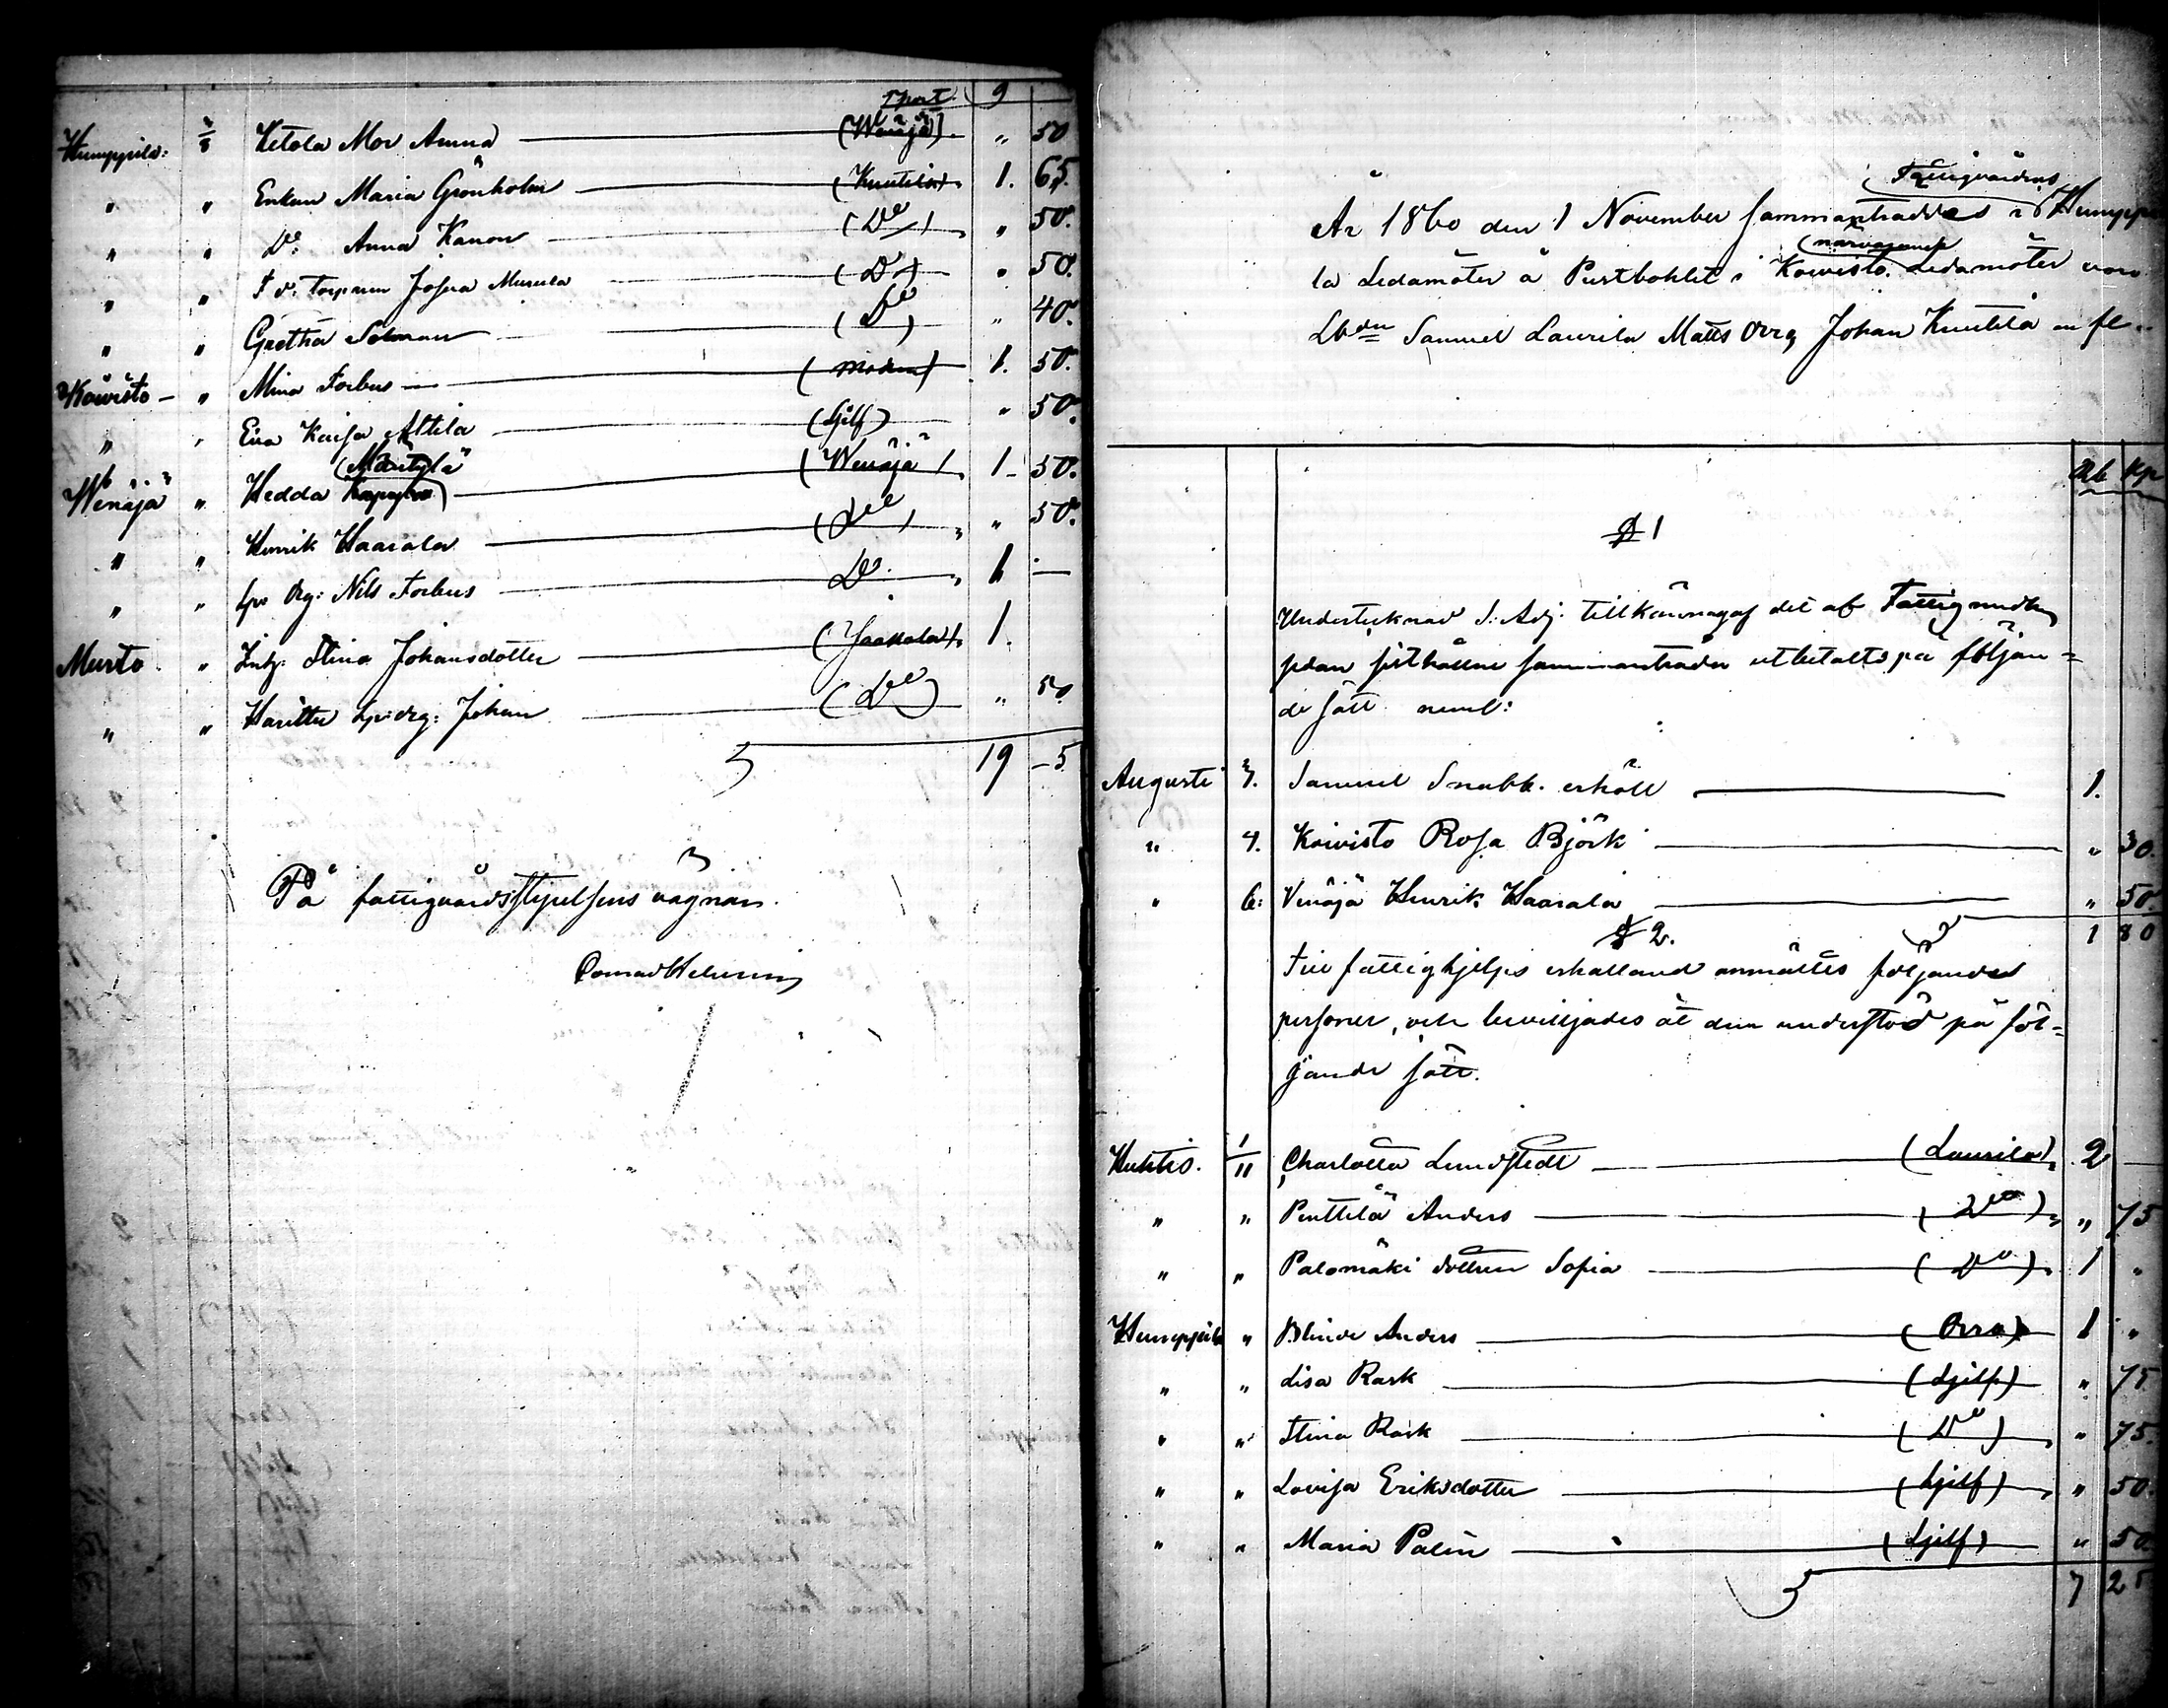 Tport. 9
Humppila: 2/8 Ketola Mor Anna (Wenäjä) „ 50
„ „ Enkan Maria Grönholm (Knutila) 1. 65.
„ „ Do: Anna Kanon (Do) „ 50.
„ „ F d. Torp: Josua Murula (Do) „ 50.
„ „ Gretha Salman (Do) „ 40.
Koivisto „ Mina Forbus (modren) 1. 50.
„ „ Eva Kaisa Attila (sjelf) „ 50.
(Mäntylä)
Wenäjä „ Hedda (Wenäjä) 1 - 50.
„ „ Henrik Haarala (Do) „ 50.
„ „ Sp: drg: Nils Forbus Do. 1 —
Murto „ Inh: Stina Johansdotter (Jaakola) 1.
„ „ Haritta Sp: drg: Johan (Do) „ 50
19 - 5
På fattigvårdsstyrelsens vägnar.
Conrad Helenius
Fattigvårdens
År 1860 den 1 November sammanträdde i Humppi
närvarande
la Ledamöter å Prestbohlet i Koivisto. Ledamöter voro
Lbdn Samuel Laurila Matts Orrg Johan Knutila m fl.
Rb Kp
§ 1
Undertecknad S: Adj. tillkännagaf det af Fattigmedlen
sedan sisthållne sammanträde utbetalts på följan=
de sätt neml:
Augusti 3. Samuel Snabb. erhöll 1.
„ 4. Koivisto Rosa Björk „ 30.
„ 6: Venäjä Henrik Haarala „ 50.
1 80
§ 2.
Till fattighjelps erhålland anmältes följande
personer, och beviljades åt dem understöd på föl=
jande sätt.
Huhtis. 1/11 Charlotta Lundstedt (Laurila) 2 —
„ „ Penttilä Anders (Do) „ 75
„ „ Palomäki dottren Sofia (Do) 1 „
Humppila „ Blinde Anders (Orra) 1 „
„ „ Lisa Rask (sjelf) „ 75
„ „ Stina Rask (Do) „ 75.
„ „ Lovisa Eriksdotter (sjelf) „ 50.
„ „ Maria Palin (sjelf) „ 50.
7 25